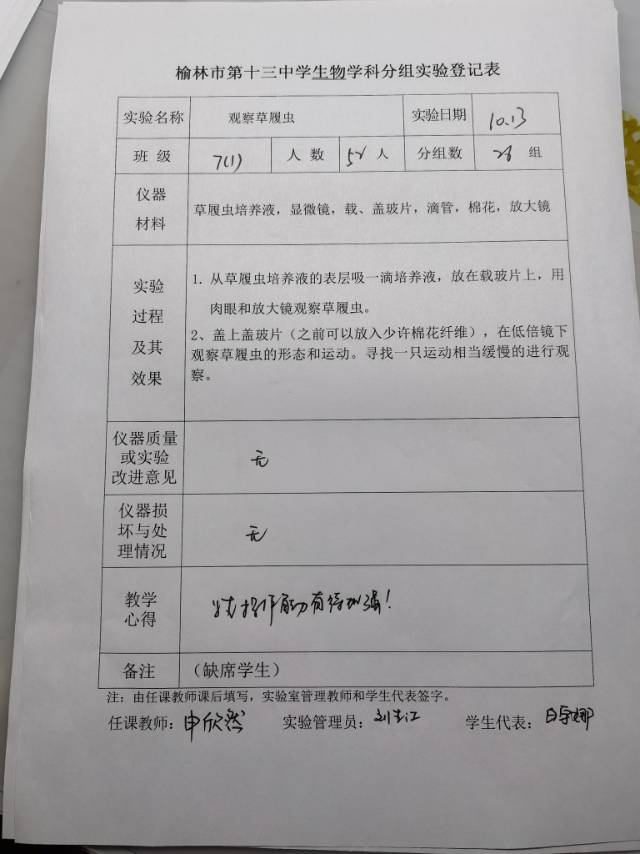 榆林市第十三中学生物学科分组实验登记表
实验名称 观察草履虫 实验日期 10.13
班 级 7(1) 人 数 52 人 分组数 26 组
仪器
材料
草履虫培养液，显微镜，载、盖玻片，滴管，棉花，放大镜
实验
过程
及其
效果
1. 从草履虫培养液的表层吸一滴培养液，放在载玻片上，用
肉眼和放大镜观察草履虫。
2、盖上盖玻片（之前可以放入少许棉花纤维），在低倍镜下
观察草履虫的形态和运动。寻找一只运动相当缓慢的进行观
察。
仪器质量
或实验
改进意见
无
仪器损
坏与处
理情况
无
教学
心得
操作能力有待加强！
备注 （缺席学生）
注：由任课教师课后填写，实验室管理教师和学生代表签字。
任课教师：申欣然 实验管理员： 学生代表：